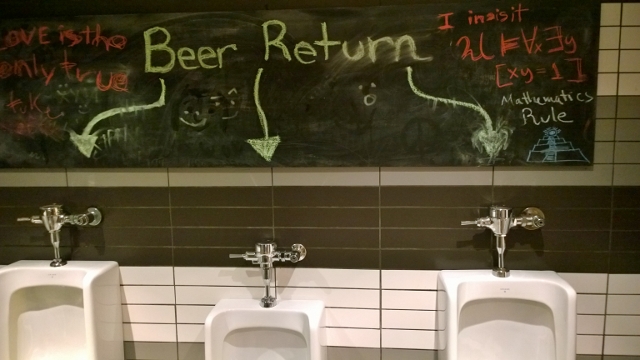 LOVE is the
only true
Beer Return
I insist
𝔘 ⊨ ∀x ∃y
[xy = 1]
Mathematics
Rule